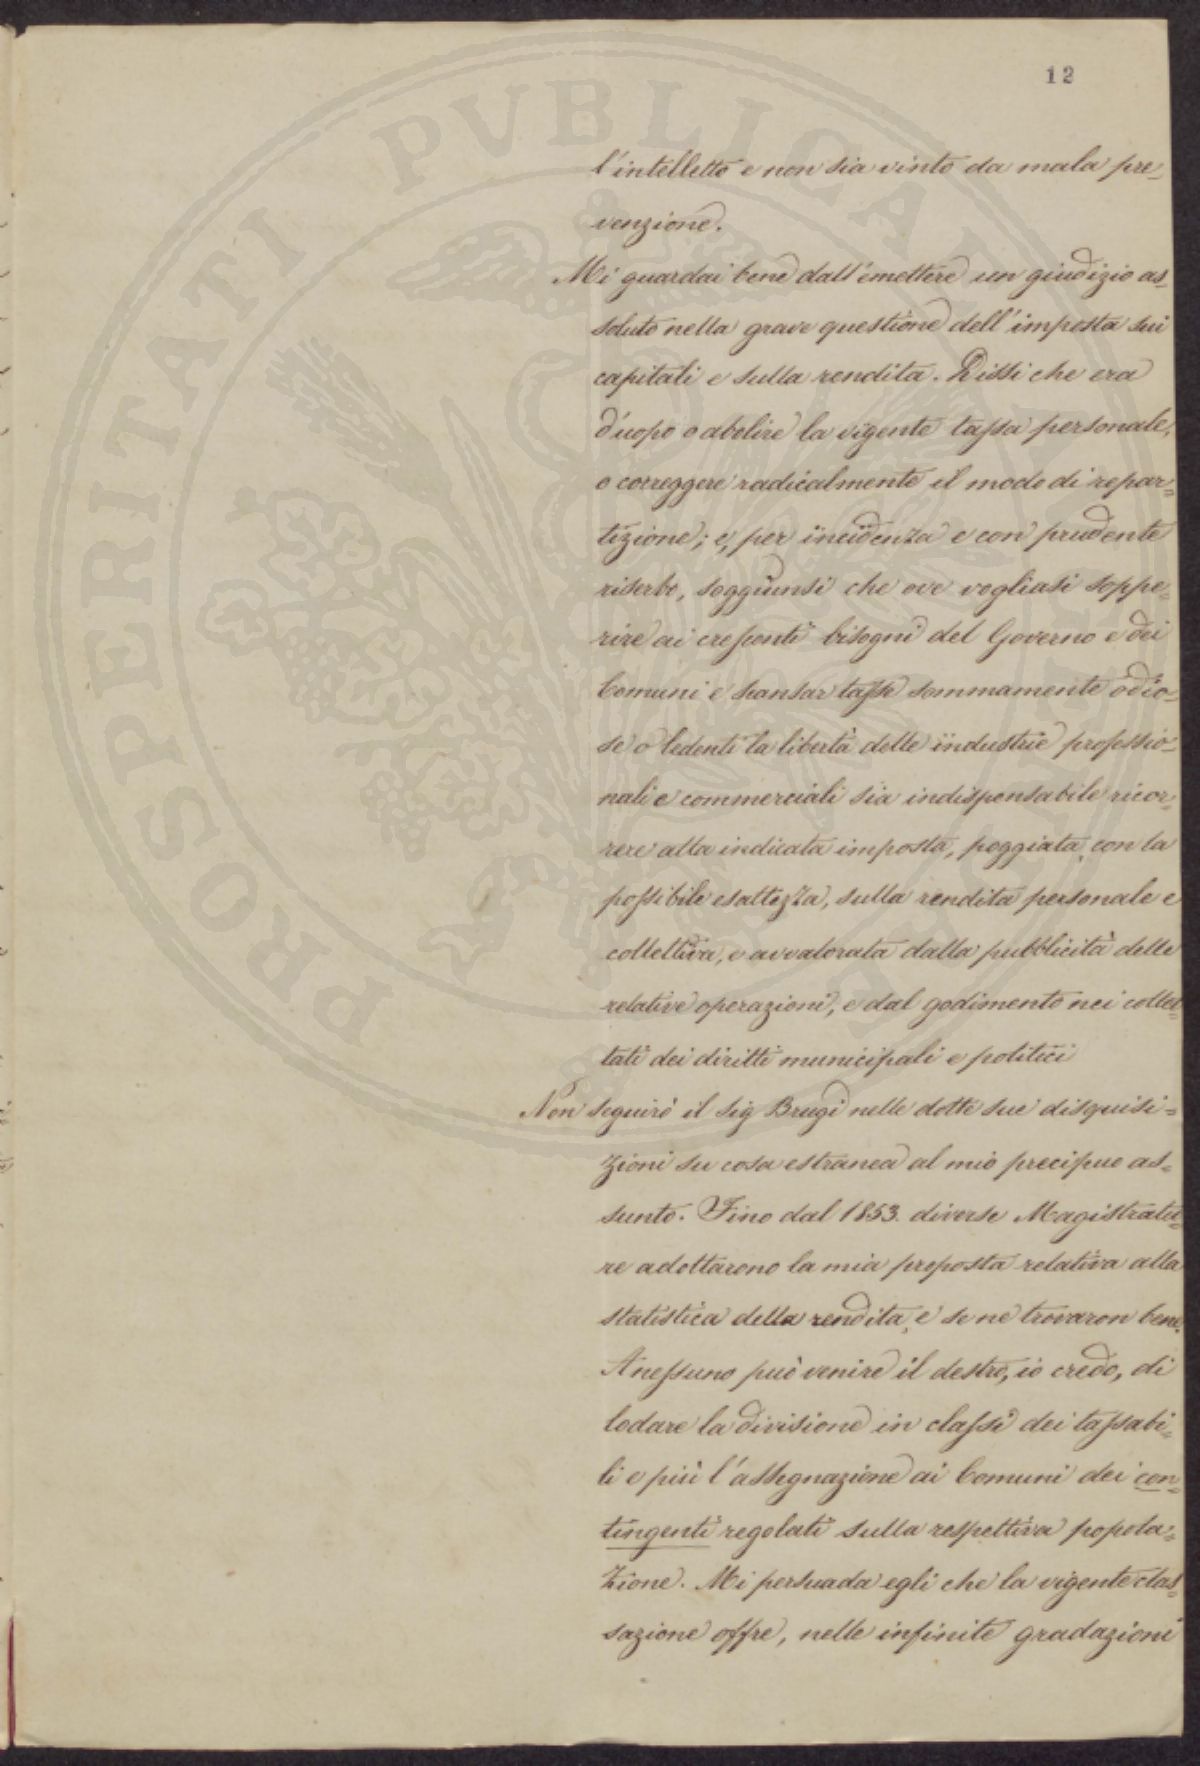 12
PROSPERITATI PUBLICAE
l'intelletto e non sia vinto da mala pre-
venzione.
Mi guardai bene dall'emettere un giudizio as-
soluto nella grave questione dell'imposta sui
capitali e sulla rendita. Dissi che era
d'uopo o abolire la vigente tassa personale,
o correggere radicalmente il modo di repar=
tizione; e, per incidenza e con prudente
riserbo, soggiunsi che ove vogliasi soppe=
rire ai crescenti bisogni del Governo e dei
Comuni e scansar tasse sommamente odio-
se o ledenti la libertà delle industrie professio-
nali e commerciali sia indispensabile ricor=
rere alla indicata imposta, poggiata, con la
possibile esattezza, sulla rendita personale e
collettiva, e avvalorata dalla pubblicità delle
relative operazioni, e dal godimento nei collet=
tati dei diritti municipali e politici
Non seguirò il sig Brugi nelle dotte sue disquisi=
zioni su cosa estranea al mio precipuo as=
sunto. Fino dal 1853. diverse Magistratu=
re adottarono la mia proposta relativa alla
statistica della rendita, e se ne trovaron bene.
A nessuno può venire il destro, io credo, di
lodare la divisione in classi dei tassabi=
li e più l'assegnazione ai Comuni dei con=
tingenti regolati sulla respettiva popola=
zione. Mi persuada egli che la vigente clas=
sazione offre, nelle infinite gradazioni